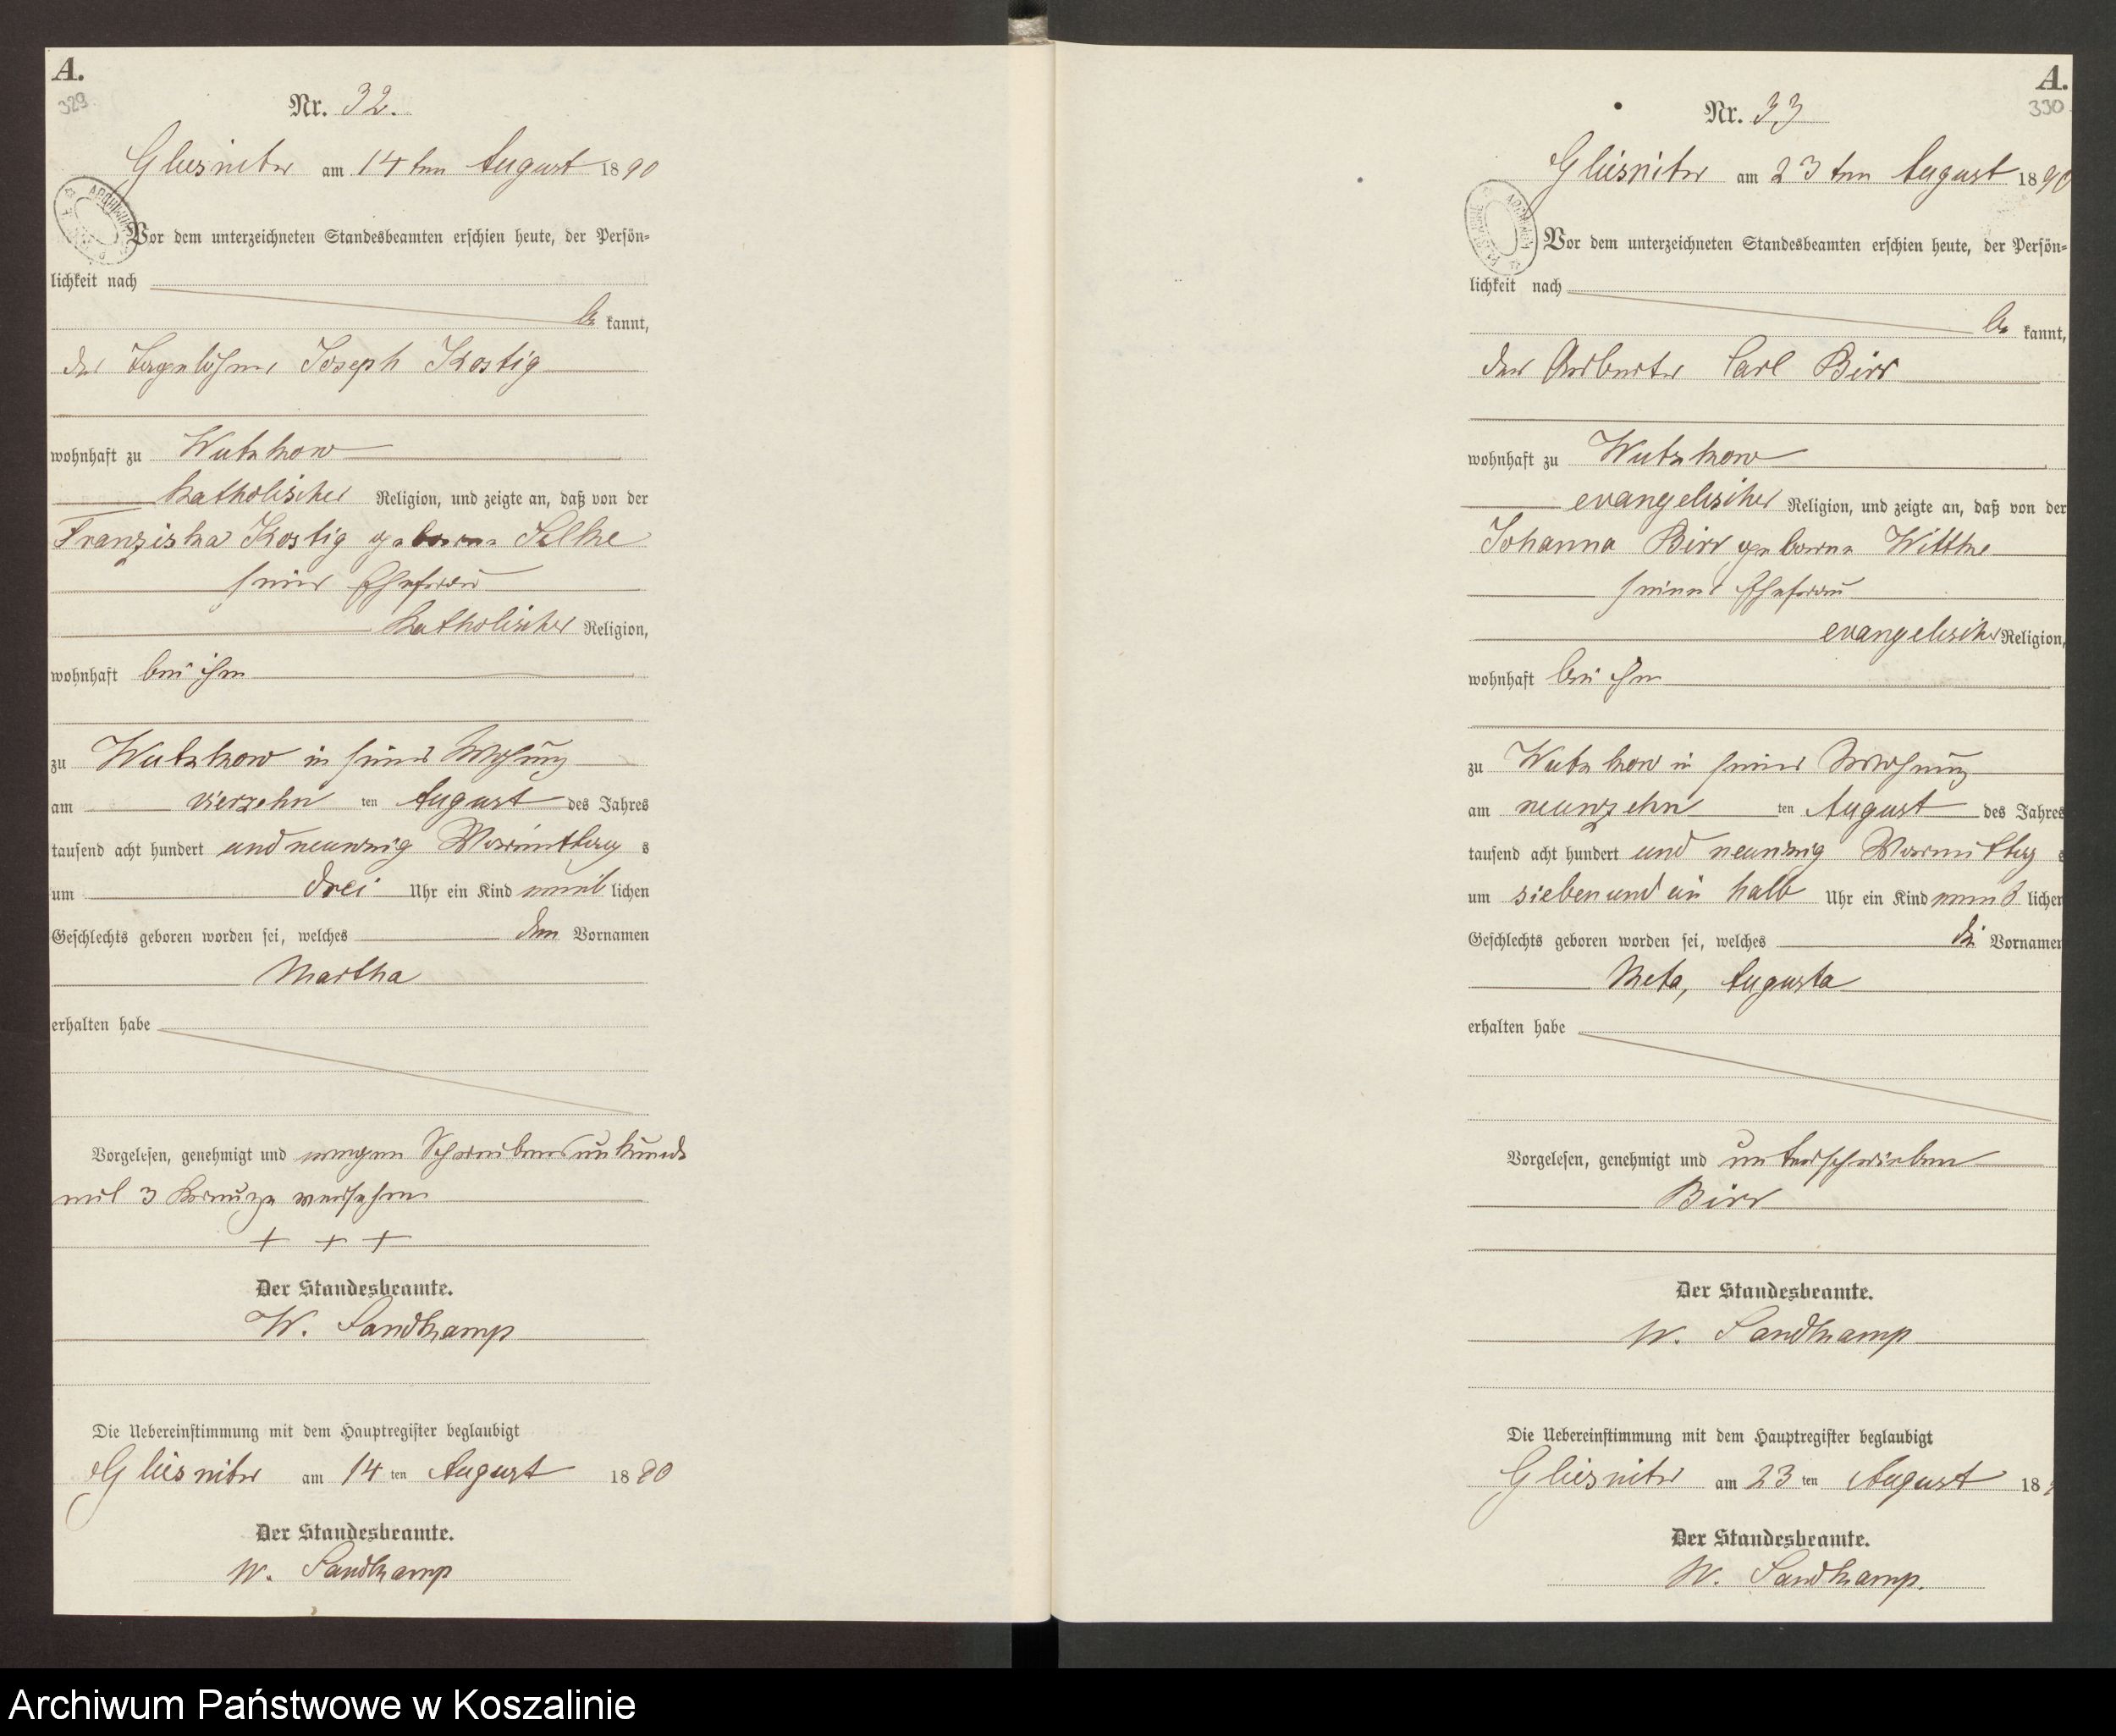 A.
329
Nr. 32.
Gliesnitz am 14ten August 1890
Vor dem unterzeichneten Standesbeamten erschien heute, der Persön-
lichkeit nach
be kannt,
der Tagelöhner Joseph Kostig
wohnhaft zu Wutzkow
katholischer Religion, und zeigte an, daß von der
Franziska Kostig geborne
seiner Ehefrau
katholischer Religion,
wohnhaft bei ihm
zu Wutzkow in seiner Wohnung
am vierzehn ten August des Jahres
tausend acht hundert und neunzig Vormittag s
um drei Uhr ein Kind weib lichen
Geschlechts geboren worden sei, welches den Vornamen
Martha
erhalten habe
Vorgelesen, genehmigt und wegen Schreibensunkunde
mit 3 Kreuze versehen
+ + +
Der Standesbeamte.
W. Sandkamp
Die Uebereinstimmung mit dem Hauptregister beglaubigt
Gliesnitz am 14 ten August 1890
Der Standesbeamte.
W. Sandkamp
A.
330
Nr. 33
Gliesnitz am 23ten August 1890
Vor dem unterzeichneten Standesbeamten erschien heute, der Persön-
lichkeit nach
be kannt,
der Arbeiter Carl Birr
wohnhaft zu Wutzkow
evangelischer Religion, und zeigte an, daß von der
Johanna Birr geborne Wittke
seiner Ehefrau
evangelischer Religion,
wohnhaft bei ihm
zu Wutzkow in seiner Wohnung
am neunzehn ten August des Jahres
tausend acht hundert und neunzig Vormittag s
um sieben und ein halb Uhr ein Kind weib lichen
Geschlechts geboren worden sei, welches die Vornamen
Meta, Augusta
erhalten habe
Vorgelesen, genehmigt und unterschrieben
Birr
Der Standesbeamte.
W. Sandkamp
Die Uebereinstimmung mit dem Hauptregister beglaubigt
Gliesnitz am 23 ten August 18
Der Standesbeamte.
W. Sandkamp.
Archiwum Państwowe w Koszalinie